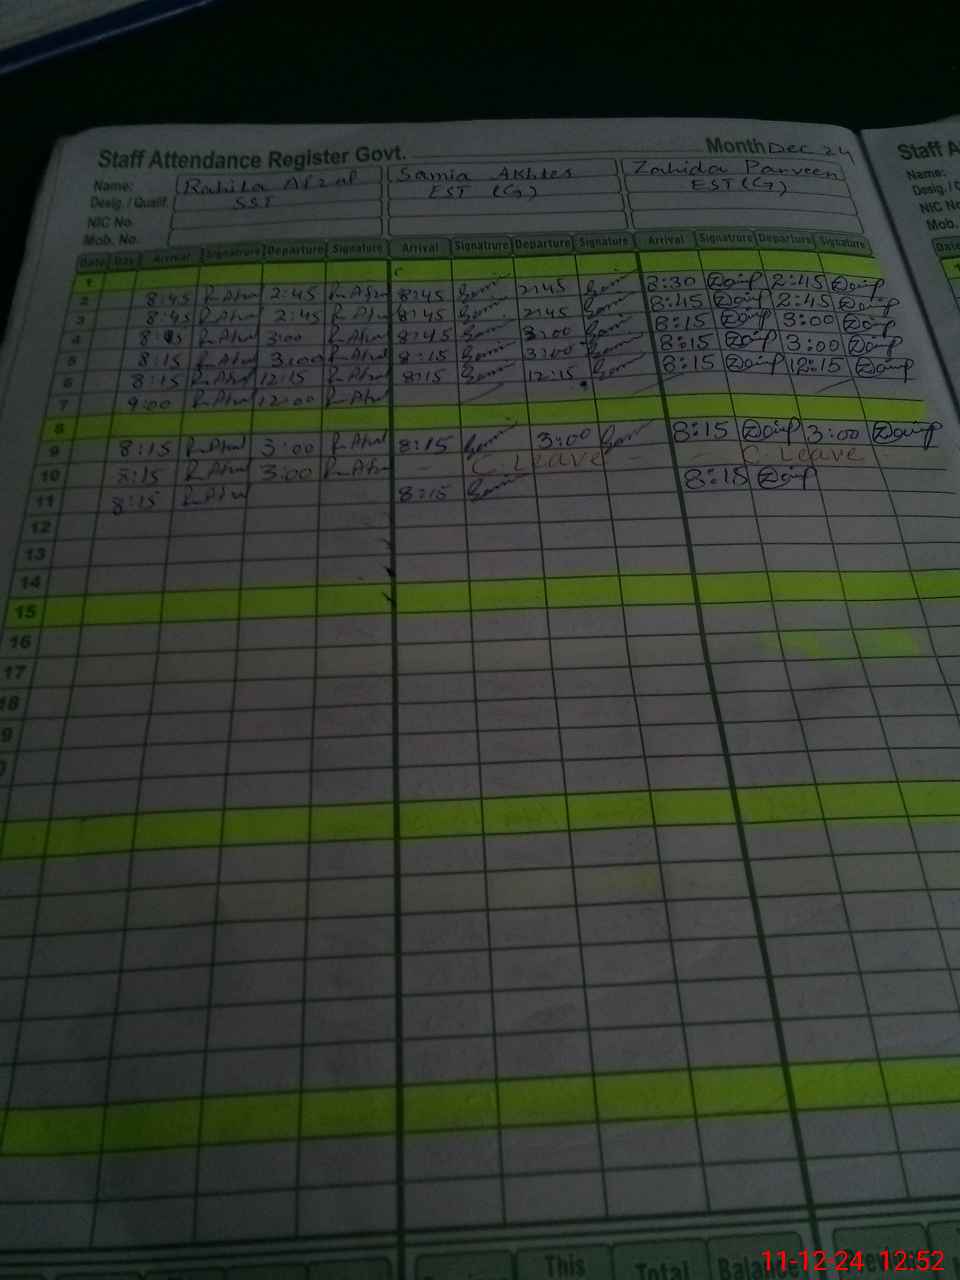 Staff Attendance Register Govt. Month Dec 24 Staff A
Name: Rahila Afzal Samia Akhter Zahida Parveen Name:
Desig. / Qualif. SST EST (G) EST (G) Desig. / Q
NIC No. NIC No
Mob. No. Mob.
Date Day Arrival Signatrure Departure Signature Arrival Signatrure Departure Signature Arrival Signatrure Departure Signature Date
1
2 8:45 R.Afzal 2:45 R.Afzal 8:45 Sami 2:45 Sami 8:30 2:45
3 8:45 R.Afzal 2:45 R.Afzal 8:45 Sami 2:45 Sami 8:45 2:45
4 R.Afzal 3:00 R.Afzal 8:45 Sami 3:00 Sami 8:15 3:00
5 8:15 R.Afzal 3:00 R.Afzal 8:15 Sami 3:00 Sami 8:15 3:00
6 8:15 R.Afzal 12:15 R.Afzal 8:15 Sami 12:15 Sami 8:15 12:15
7 9:00 R.Afzal 12:00 R.Afzal
8
9 8:15 R.Afzal 3:00 R.Afzal 8:15 Sami 3:00 Sami 8:15 3:00
10 8:15 R.Afzal 3:00 R.Afzal C. Leave C. Leave
11 8:15 R.Afzal 8:15 Sami 8:15
12
13
14
15
16
17
18
9
This Total Balance
11-12-24 12:52